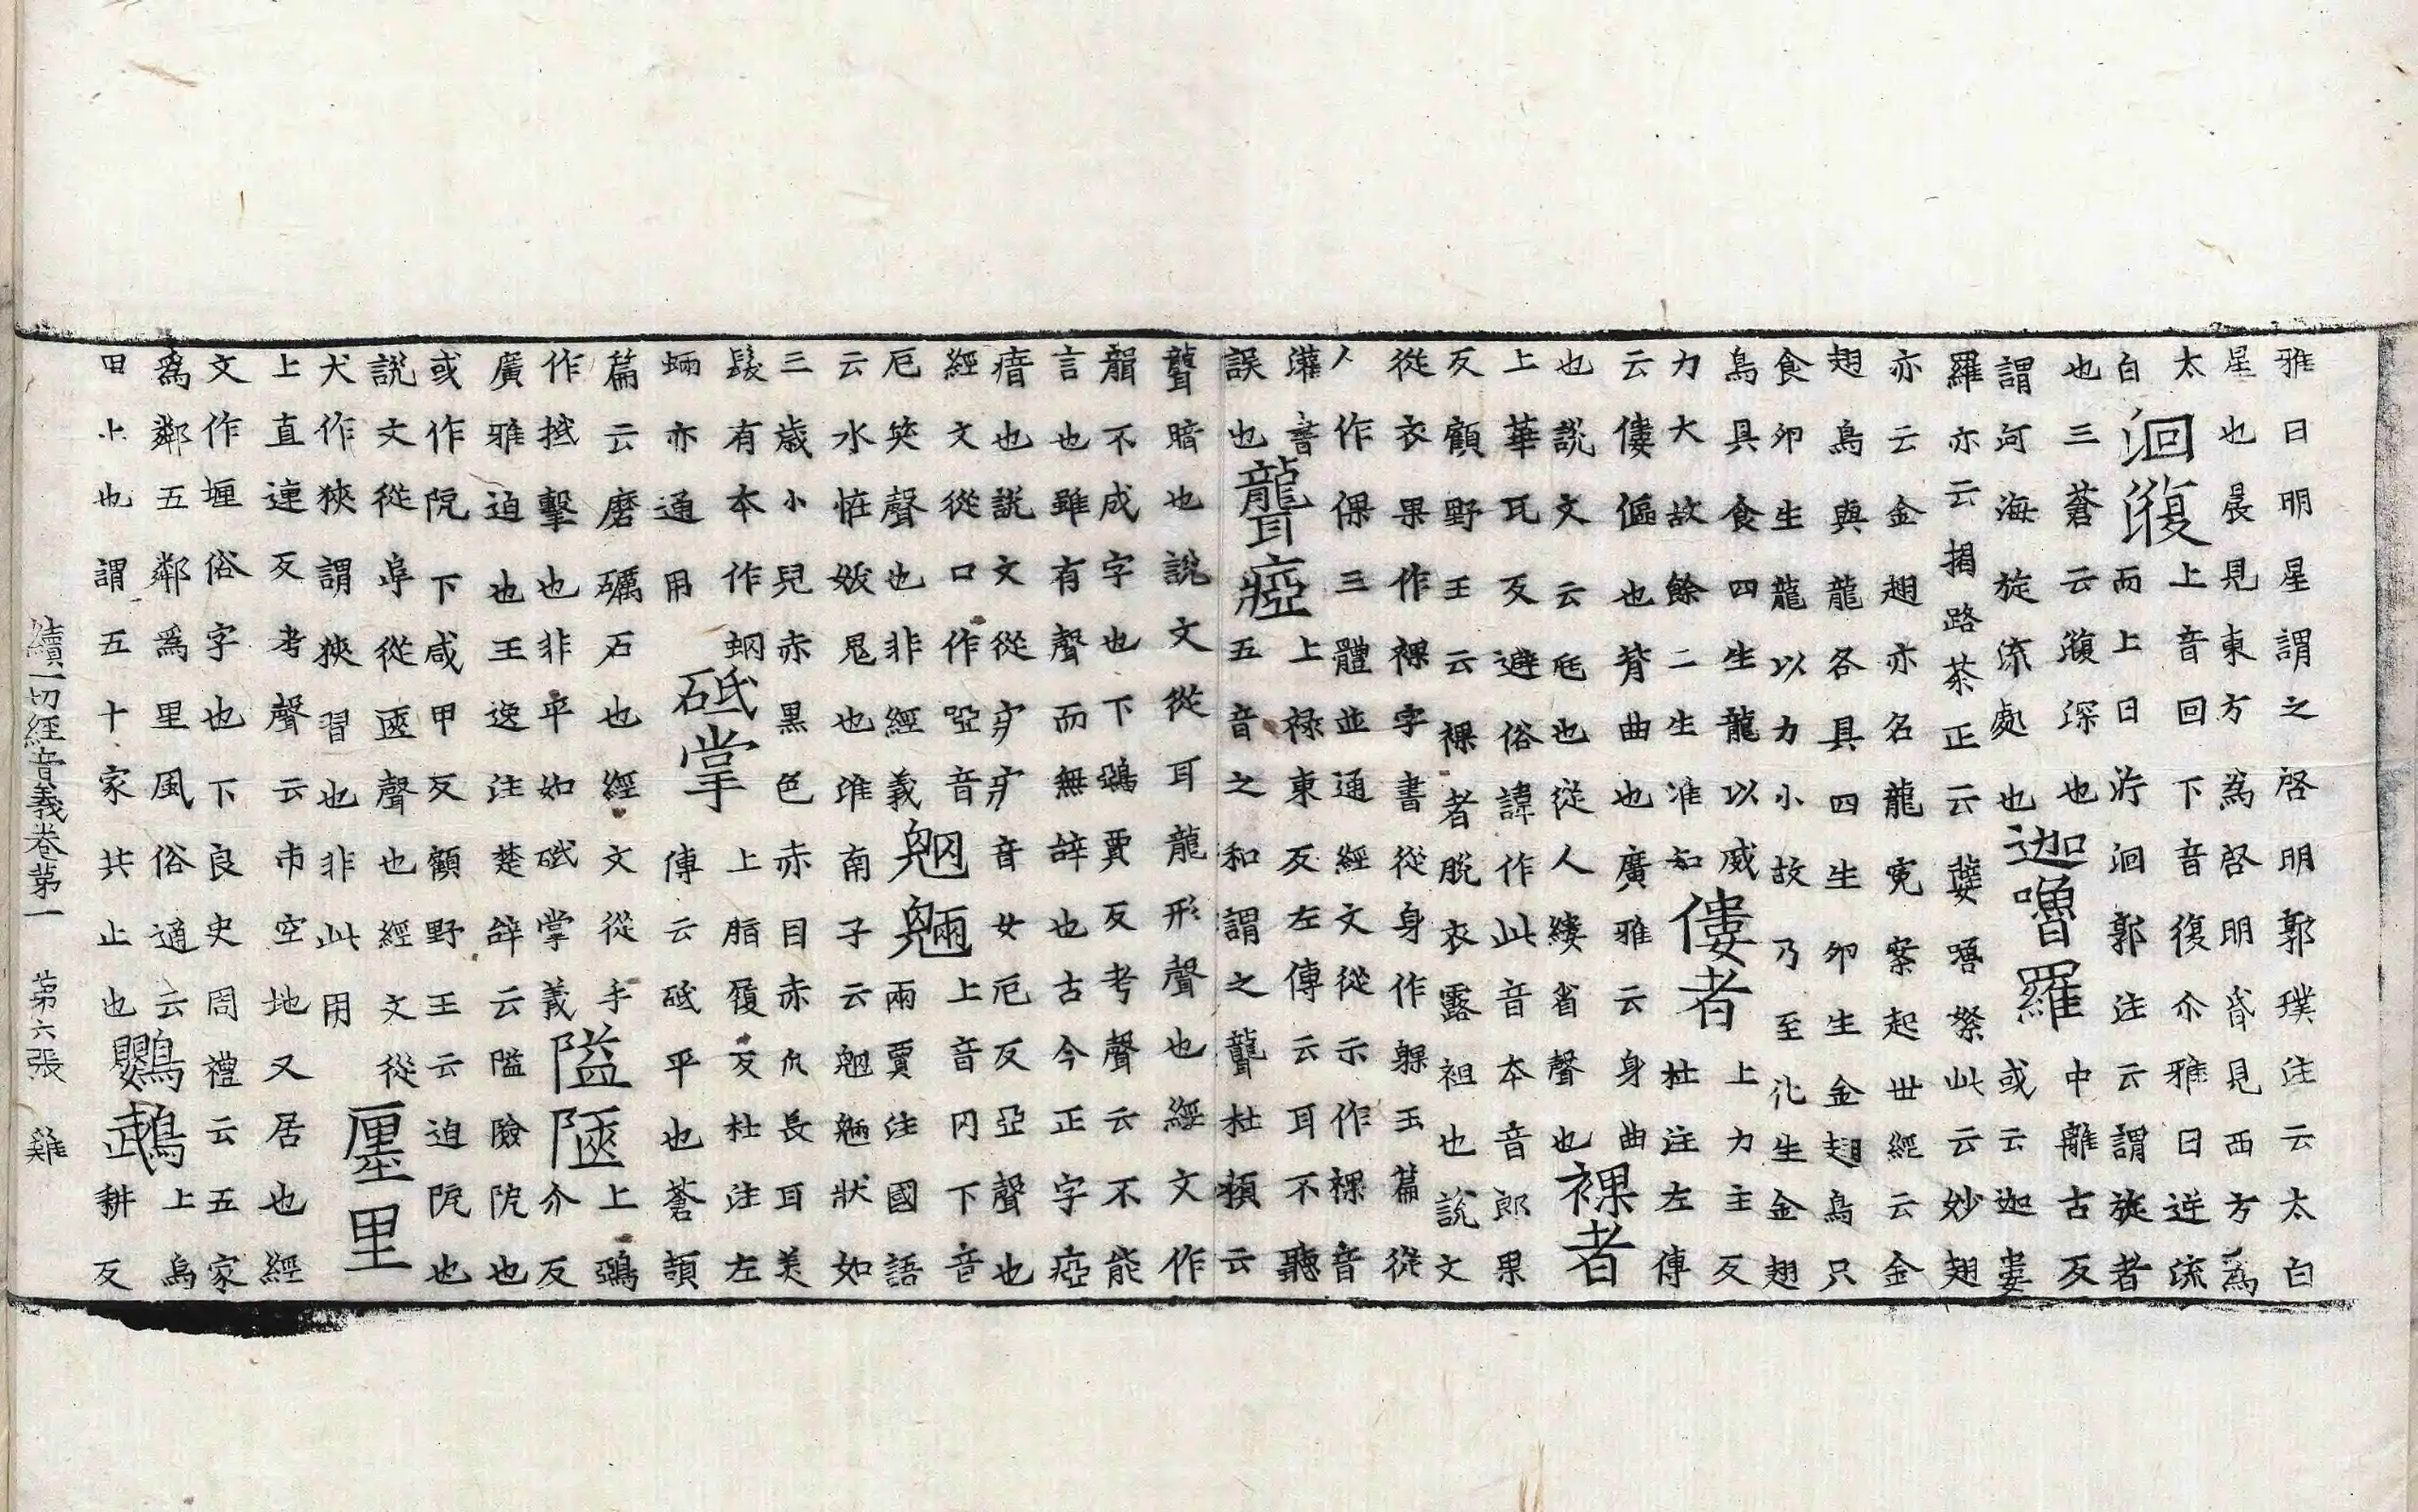 雅曰明星謂之啓明郭璞注云太白
星也晨見東方為啓明昏見西方為
太
白
洄澓
上音回下音復尒雅曰逆流
而上曰泝洄郭注云謂旋者
也三蒼云澓深也
謂河海旋流處也
迦嚕羅
中離古反
或云迦婁
羅亦云揭路荼正云櫱嚕拏此云妙翅
亦云金翅亦名龍寃案起世經云金
翅鳥與龍各具四生卵生金翅鳥只
食卵生龍以力小故乃至化生金翅
鳥具食四生龍以威
力大故餘二生准知
僂者
上力主反
杜注左傳
云僂傴也背曲也廣雅云身曲
也說文云尫也從人縷省聲也
裸者
上華瓦反避俗諱作此音本音郎果
反顧野王云裸者脫衣露袒也說文
從衣果作裸字書從身作躶玉篇從
人作倮三體並通經文從示作祼音
灌書
誤也
聾瘂
上祿東反左傳云耳不聽
五音之和謂之聾杜預云
聾暗也說文從耳龍形聲也經文作
不成字也下鵶賈反考聲云不能
言也雖有聲而無辞也古今正字瘂
瘖也說文從疒疒音女厄反亞聲也
經文從口作啞音
厄笑聲也非經義
魍魎
上音罔下音
兩賈注國語
云水恠妭鬼也淮南子云魍魎狀如
三歲小兒赤黑色赤目赤爪長耳美
髮有本作蛧
蜽亦通用
砥掌
上脂履反杜注左
傳云砥平也蒼頡
篇云磨礪石也經文從手
作抵擊也非平如砥掌義
隘陜
上鵶
介反
廣雅迫也王逸注楚辝云隘險阸也
或作阨下咸甲反顧野王云迫阨也
說文從阜從匧聲也經文從
犬作狹謂狹習也非此用
㕓里
上直連反考聲云市空地又居也經
文作堰俗字也下良史反周禮云五家
為鄰五鄰為里風俗通云
田止也謂五十家共止也
鸚鵡
上烏
耕反
續一切經音義卷第一 第六張 雞